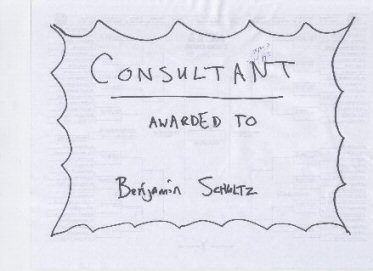 CONSULTANT
AWARDED TO
Benjamin SCHULTZ